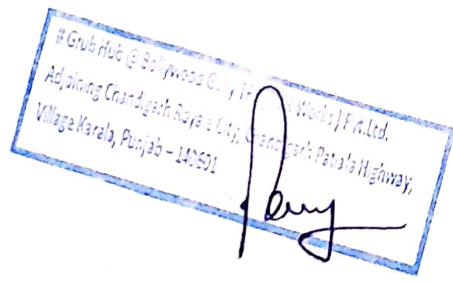 # Grub Hub @ Bollywood Gully Works) Pvt.Ltd.
Adjoining Chandigarh Royale City, Chandigarh Patiala Highway,
Village Karala, Punjab – 140601